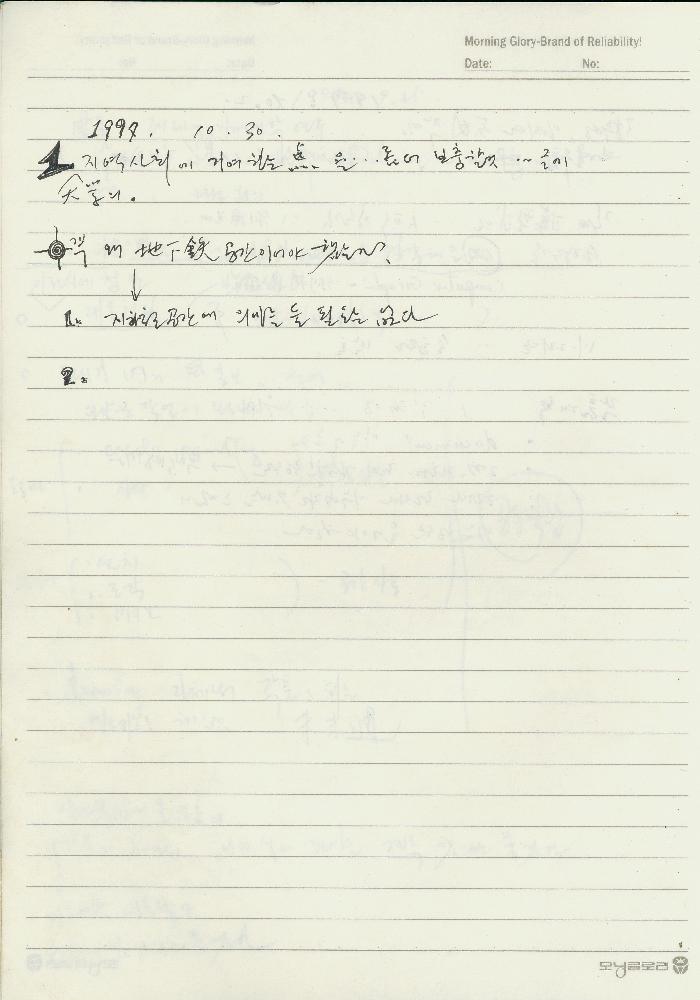 Morning Glory-Brand of Reliability!
Date: No:
1997. 10. 30.
1. 지역사회에 기여하는 点을.. 좀더 보충할것
大学의.
왜 地下鉄 공간이어야 했는가.
1. 지하철공간에 의미를 둘 필요는 없다
2.
모닝글로리